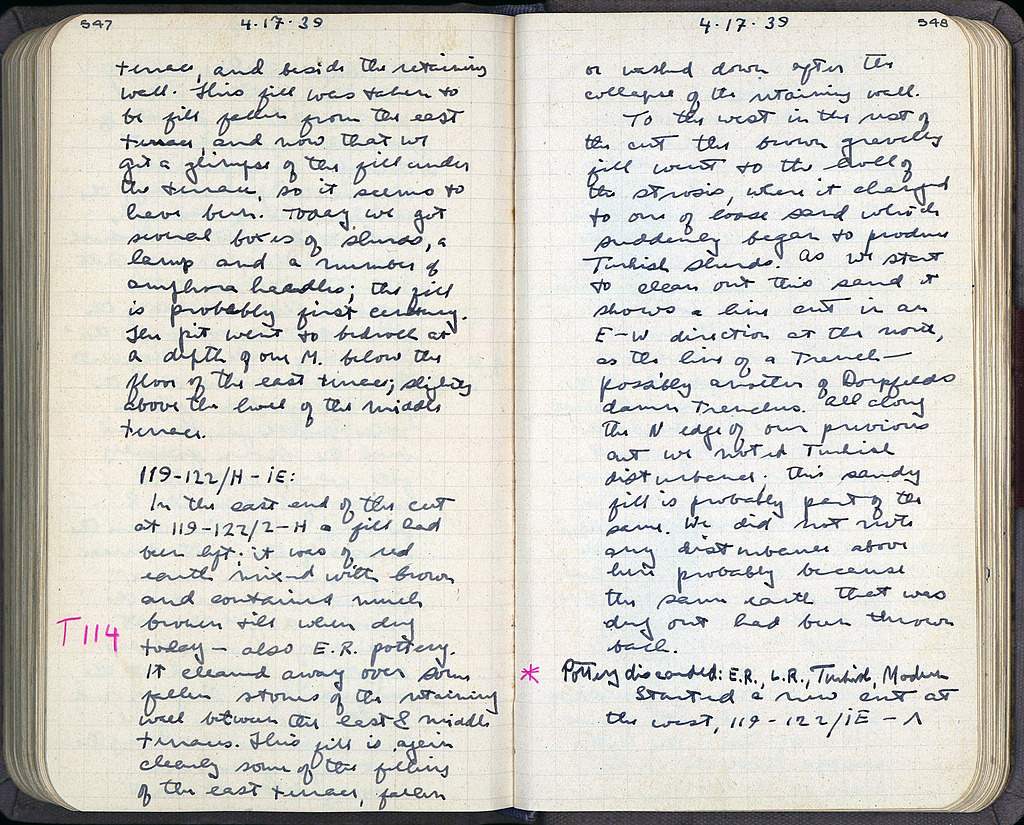 547
4.17.39
terrace, and beside the retaining
wall. This fill was taken to
be fill fallen from the east
terrace, and now that we
get a glimpse of the fill under
the terrace, so it seems to
have been. Today we got
several boxes of sherds, a
lamp and a number of
amphora handles; the fill
is probably first century.
The pit went to bedrock at
a depth of one M. below the
floor of the east terrace; slightly
above the level of the middle
terrace.
119-122/H-IE:
In the east end of the cut
at 119-122/2-H a fill had
been left; it was of red
earth mixed with brown
and contained much
broken tile when dug
T114
today – also E.R. pottery.
It cleaned away over some
fallen stones of the retaining
wall between the east & middle
terraces. This fill is again
clearly some of the filling
of the east terrace, fallen
4.17.39
548
or washed down after the
collapse of the retaining wall.
To the west in the rest of
the cut the brown gravelly
fill went to the level of
the strosis, where it changed
to one of loose sand which
suddenly began to produce
Turkish sherds. As we start
to clean out this sand it
shows a line cut in an
E-W direction at the north,
as the line of a Trench –
possibly another of Dorpfelds
damn Trenches. All along
the N edge of our previous
cut we noted Turkish
disturbance; this sandy
fill is probably part of the
same. We did not note
any disturbance above
here probably because
the same earth that was
dug out had been thrown
back.
* Pottery discarded: E.R., L.R., Turkish, Modern
Started a new cut at
the west, 119-122/IE-Λ